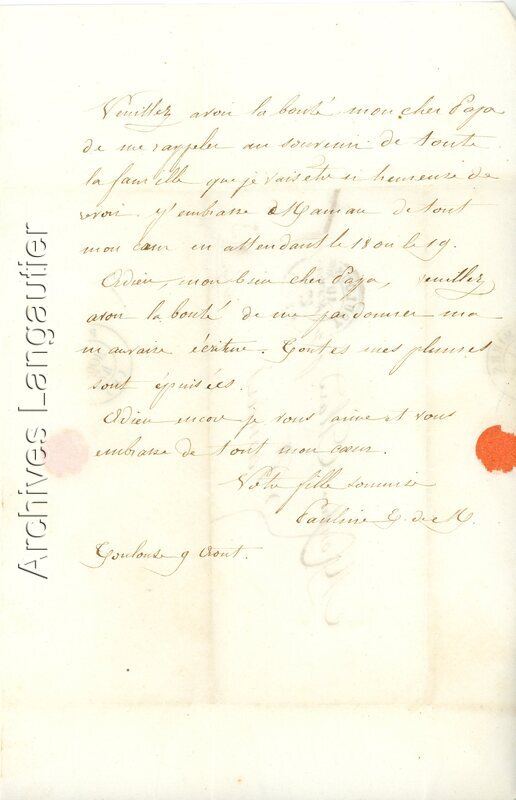 Veuillez avoir la bonté mon cher Papa
de me rappeler au souvenir de toute
la famille que je vais être si heureuse de
revoir. J'embrasse Maman de tout
mon cœur en attendant le 18 ou le 19.
Adieu, mon bien cher Papa, veuillez
avoir la bonté de me pardonner ma
mauvaise écriture. Toutes mes plumes
sont épuisées.
Adieu encore je vous aime et vous
embrasse de tout mon cœur.
Votre fille soumise
Pauline G. de M.
Toulouse 9 Aout.
Archives Langautier